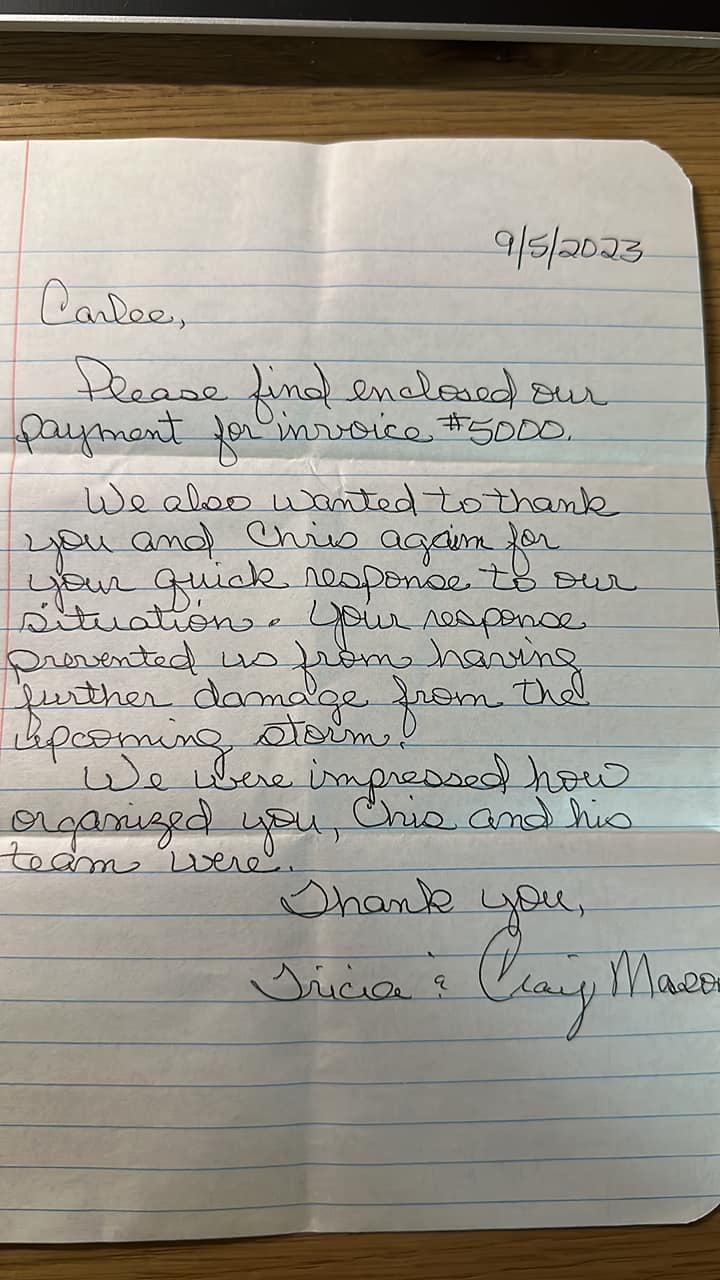 9/5/2023
Carlee,
Please find enclosed our
payment for invoice #5000.
We also wanted to thank
you and Chris again for
your quick response to our
situation. Your response
prevented us from having
further damage from the
upcoming storm!
We were impressed how
organized you, Chis and his
team were.
Thank you,
Tricia & Craig